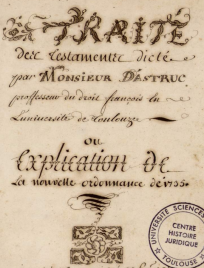 TRAITÉ
des testaments dicté
par MONSIEUR DASTRUC
professeur du droit françois en
Luniversité de toulouze
ou
Explication DE
La nouvelle ordonnance de 1735.
UNIVERSITÉ SCIENCES
CENTRE
HISTOIRE
JURIDIQUE
TOULOUSE